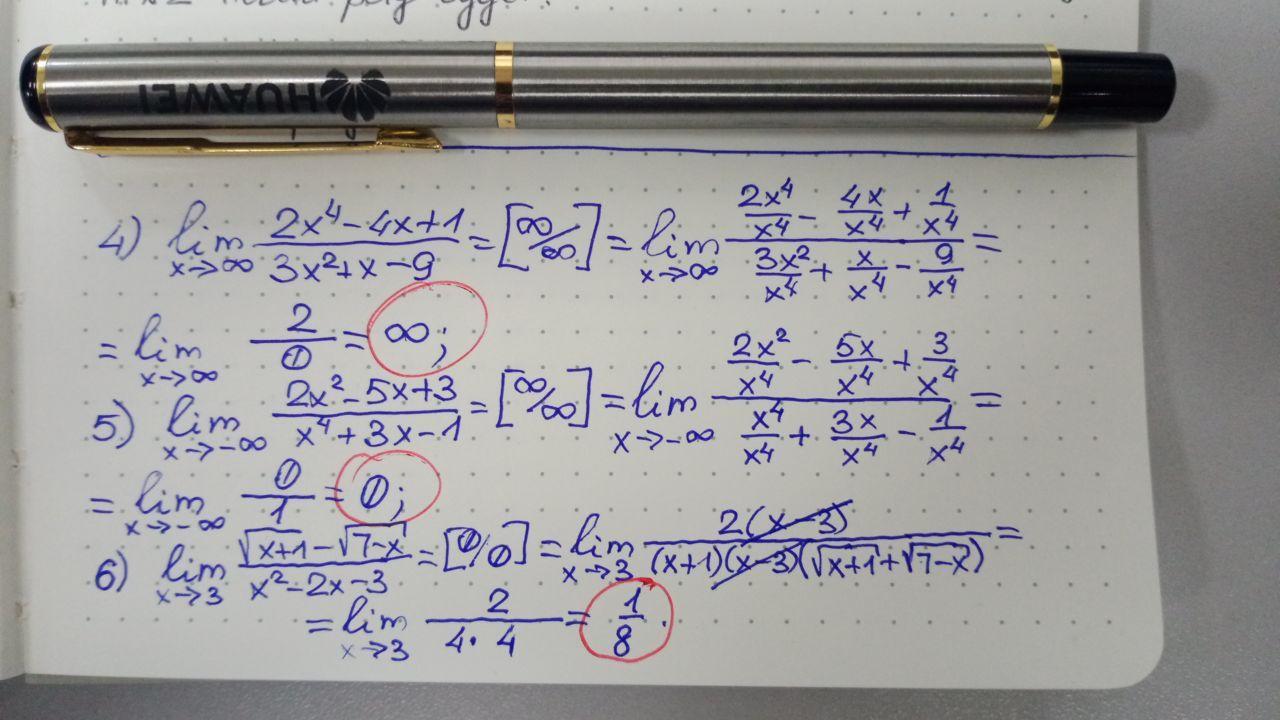 HUAWEI
4) lim x→∞ (2x⁴ - 4x + 1)/(3x² + x - 9) = [∞/∞] = lim x→∞ (2x⁴/x⁴ - 4x/x⁴ + 1/x⁴)/(3x²/x⁴ + x/x⁴ - 9/x⁴) =
= lim x→∞ 2/0 = ∞;
5) lim x→-∞ (2x² - 5x + 3)/(x⁴ + 3x - 1) = [∞/∞] = lim x→-∞ (2x²/x⁴ - 5x/x⁴ + 3/x⁴)/(x⁴/x⁴ + 3x/x⁴ - 1/x⁴) =
= lim x→-∞ 0/1 = 0;
6) lim x→3 (√(x+1) - √(7-x))/(x² - 2x - 3) = [0/0] = lim x→3 2(x-3)/((x+1)(x-3)(√(x+1) + √(7-x))) =
= lim x→3 2/(4·4) = 1/8.